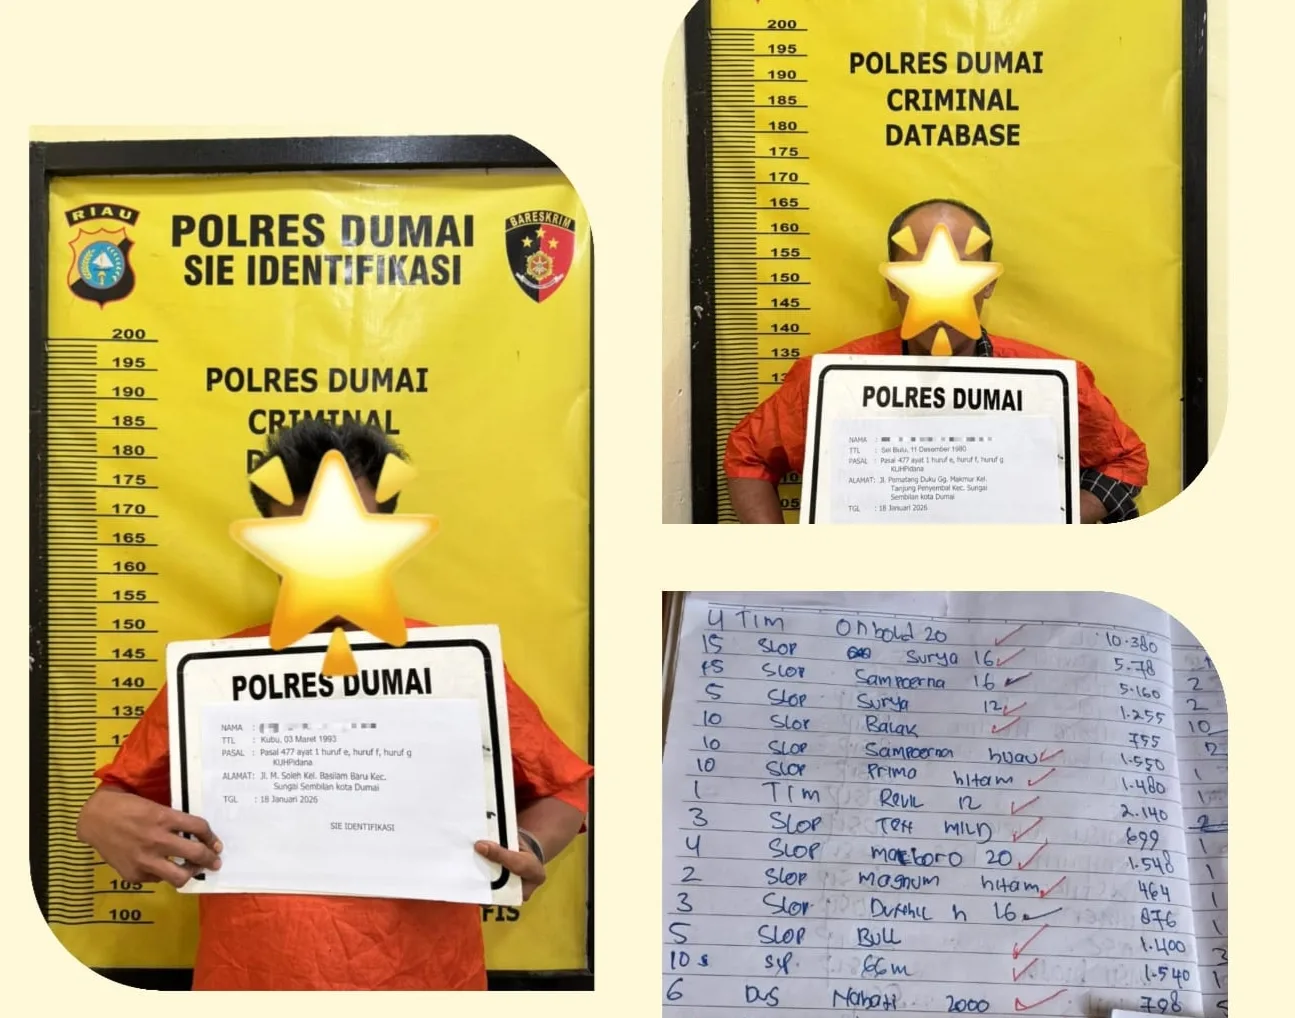 RIAU
POLRES DUMAI
SIE IDENTIFIKASI
BARESKRIM
200
195
190
185
180
175
170
165
160
155
150
145
140
135
105
100
POLRES DUMAI
CRIMINAL
POLRES DUMAI
NAMA :
TTL : Kubu, 03 Maret 1993
PASAL : Pasal 477 ayat 1 huruf e, huruf f, huruf g
KUHPidana
ALAMAT: Jl. M. Soleh Kel. Basilam Baru Kec.
Sungai Sembilan kota Dumai
TGL : 18 Januari 2026
SIE IDENTIFIKASI
FIS
200
195
190
185
180
175
170
165
160
155
150
145
140
135
POLRES DUMAI
CRIMINAL
DATABASE
POLRES DUMAI
NAMA :
TTL : Sei Bulu, 11 Desember 1980
PASAL : Pasal 477 ayat 1 huruf e, huruf f, huruf g
KUHPidana
ALAMAT: Jl. Pematang Duku Gg. Makmur Kel.
Tanjung Penyembal Kec. Sungai
Sembilan kota Dumai
TGL : 18 Januari 2026
4 TIM ON bold 20 10.380
15 SLOP Surya 16 5.78
15 SLOP Sampoerna 16 5.160
5 SLOP Surya 12 1.255
10 SLOP Balak 755
10 SLOP Sampoerna hijau 1.550
10 SLOP Primo hitam 1.480
1 TIM Revil 12 2.140
3 SLOP TEH MILD 699
4 SLOP marlboro 20 1.548
2 SLOP magnum hitam 464
3 SLOP h 16 876
5 SLOP BULL 1.400
10 s 1.540
6 DUS Nabati 2000 798